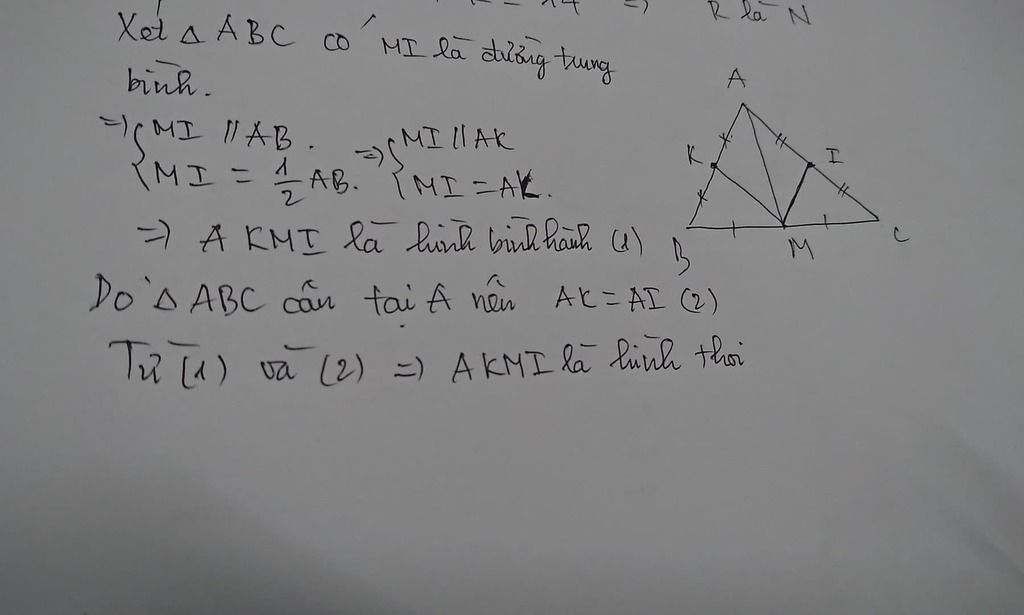 => R là N
Xét △ ABC có MI là đường trung
bình.
=> { MI // AB. => { MI // AK
MI = 1/2 AB. MI = AK.
=> AKMI là hình bình hành (1)
Do △ ABC cân tại A nên AK = AI (2)
Từ (1) và (2) => AKMI là hình thoi
A
K
I
B
M
C